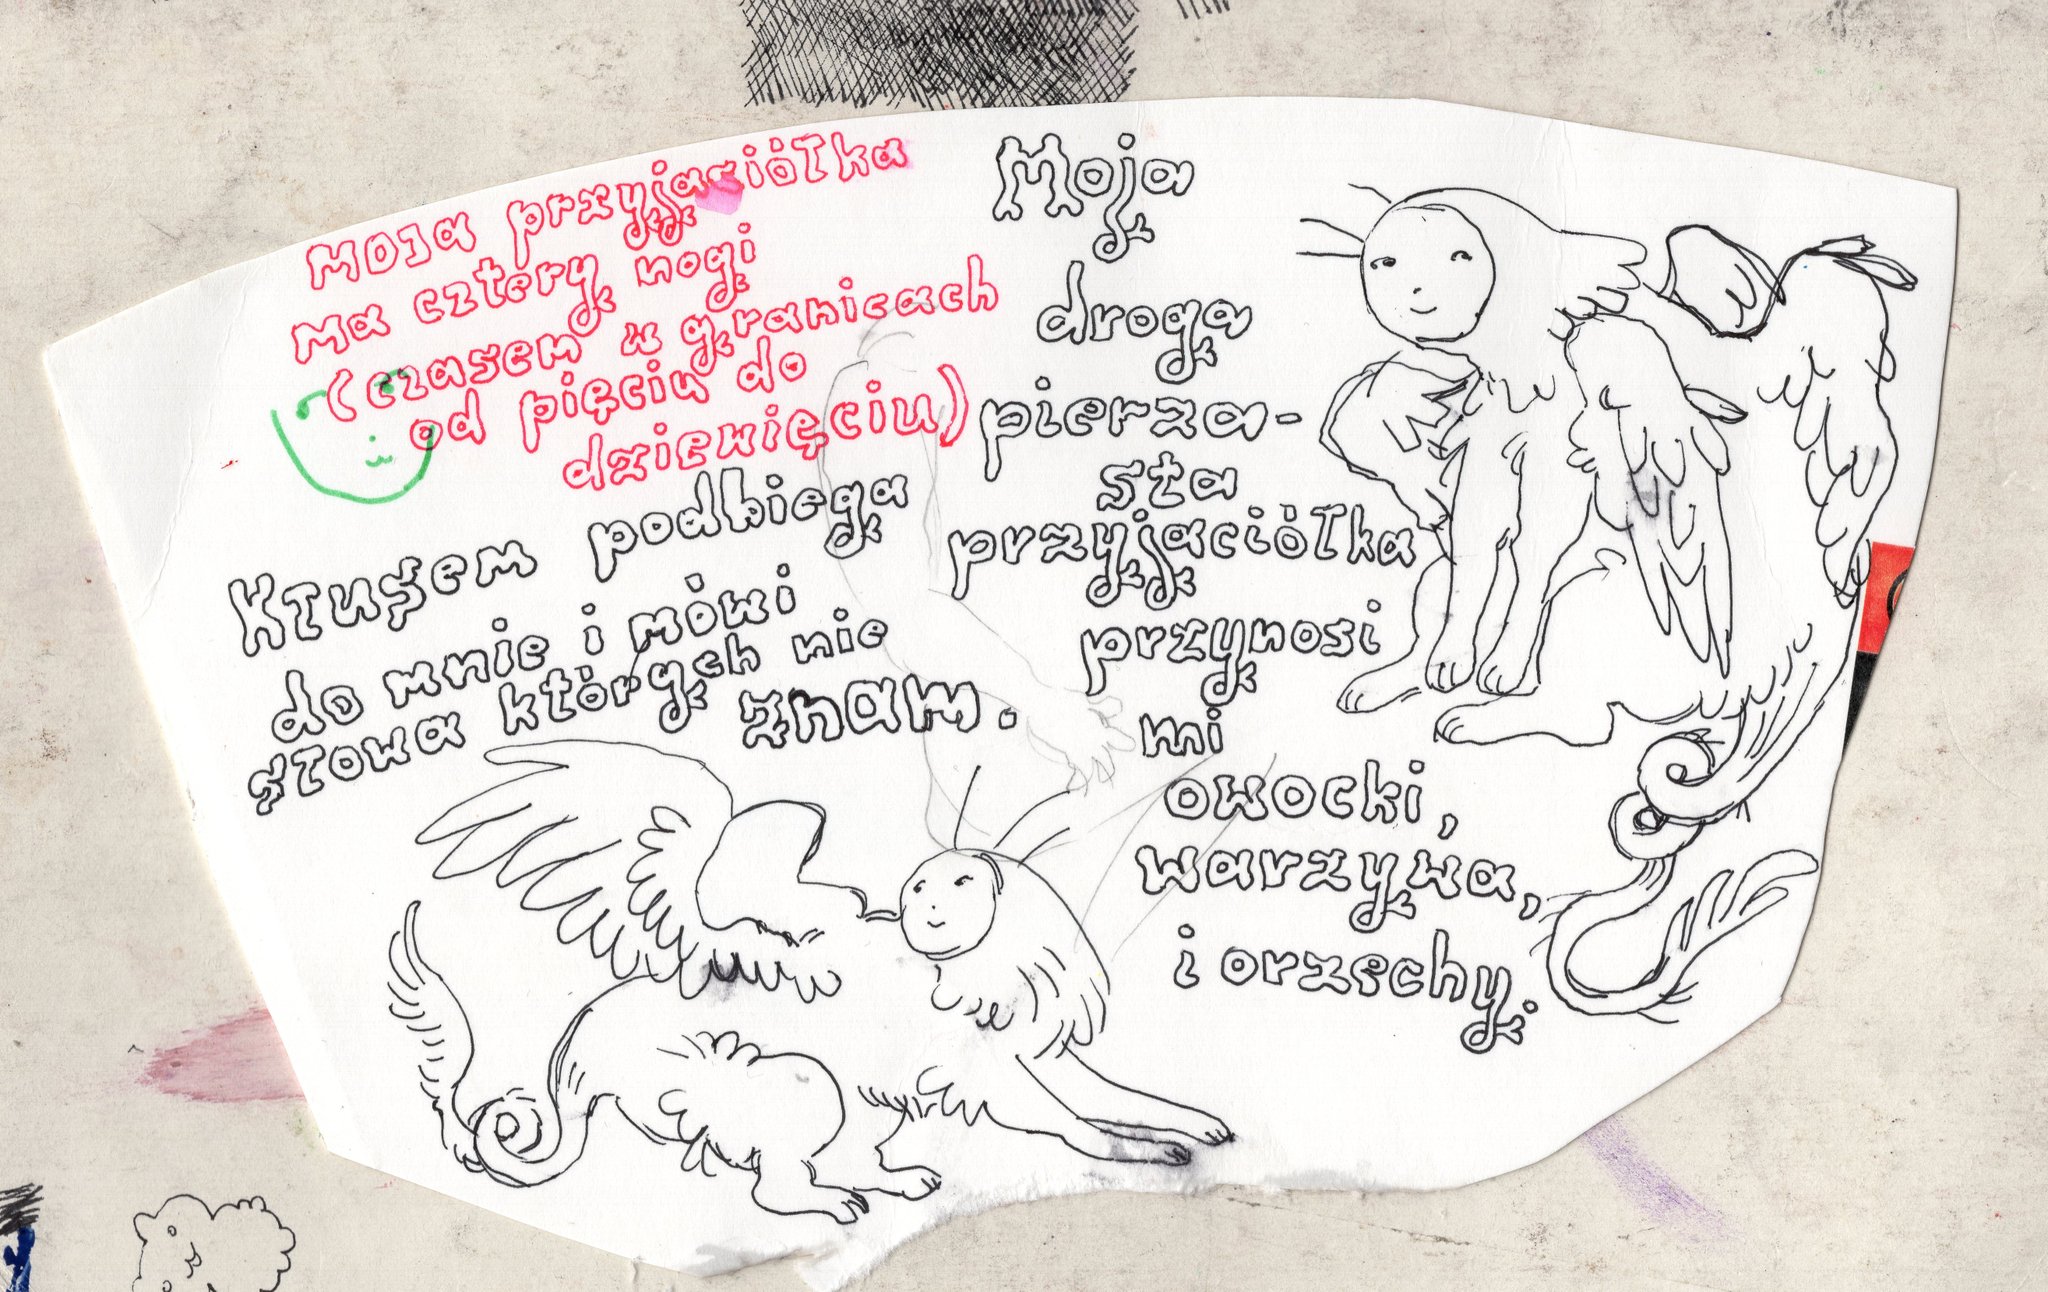 Moja przyjaciółka
ma cztery nogi
(czasem w granicach
od pięciu do
dziewięciu)
Kłusem podbiega
do mnie i mówi
słowa których nie
znam.
Moja
droga
pierza-
sta
przyjaciółka
przynosi
mi
owocki,
warzywa,
i orzechy.